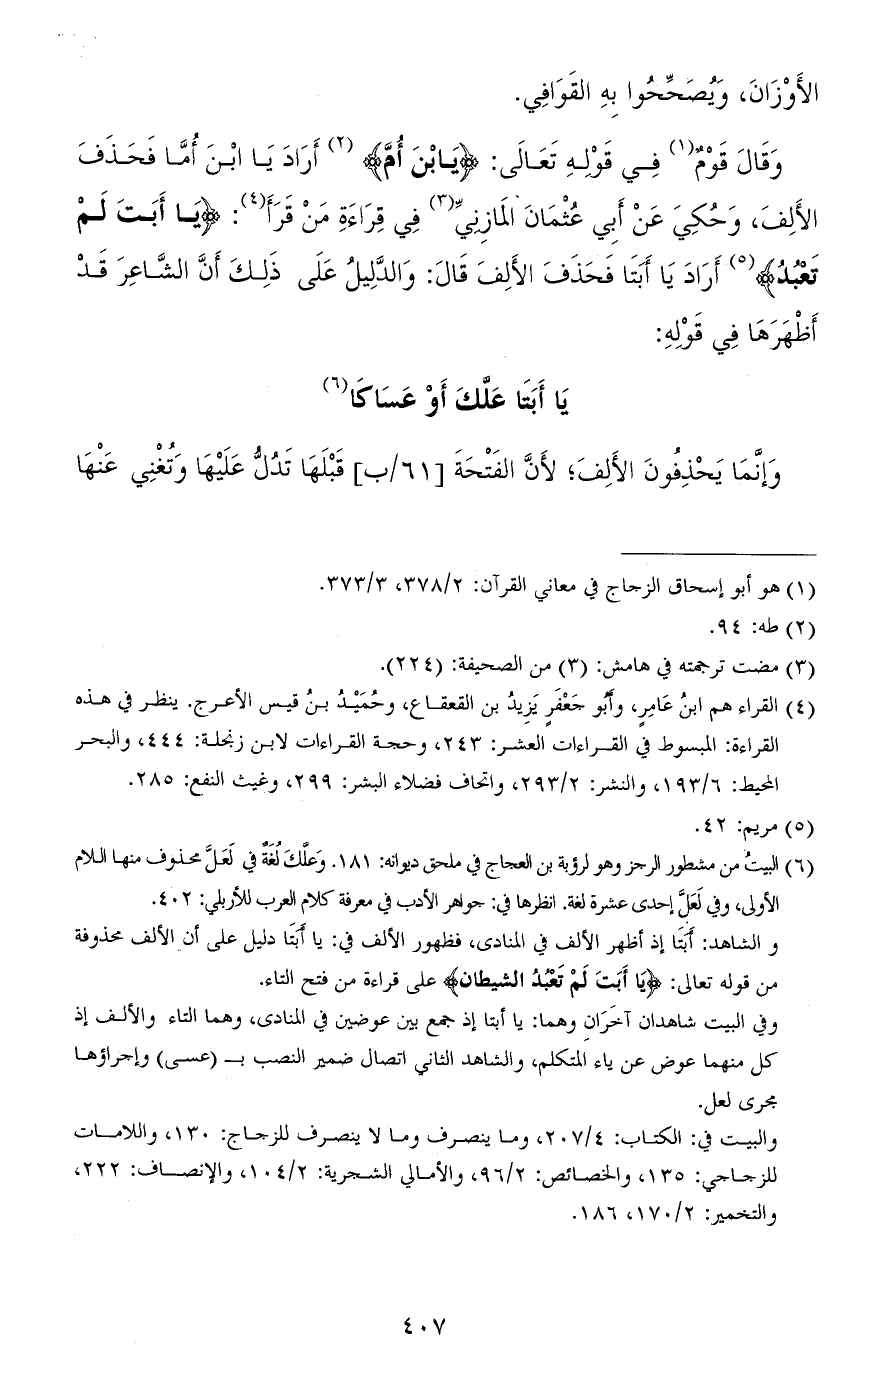 الأَوْزَانَ، وَيُصَحِّحُوا بِهِ القَوَافِي.
وَقَالَ قَوْمٌ(١) فِي قَوْلِهِ تَعَالَى: ﴿يَابْنَ أُمَّ﴾ (٢) أَرَادَ يَا ابْنَ أُمَّا فَحَذَفَ
الأَلِفَ، وَحُكِيَ عَنْ أَبِي عُثْمَانَ المَازِنِيِّ(٣) فِي قِرَاءَةِ مَنْ قَرَأَ(٤): ﴿يَا أَبَتَ لَمْ
تَعْبُدُ﴾(٥) أَرَادَ يَا أَبَتَا فَحَذَفَ الأَلِفَ قَالَ: وَالدَّلِيلُ عَلَى ذَلِكَ أَنَّ الشَّاعِرَ قَدْ
أَظْهَرَهَا فِي قَوْلِهِ:
يَا أَبَتَا عَلَّكَ أَوْ عَسَاكَا(٦)
وَإِنَّمَا يَحْذِفُونَ الأَلِفَ؛ لأَنَّ الفَتْحَةَ [٦١/ب] قَبْلَهَا تَدُلُّ عَلَيْهَا وَتُغْنِي عَنْهَا
(١) هو أبو إسحاق الزجاج في معاني القرآن: ٣٧٨/٢، ٣٧٣/٣.
(٢) طه: ٩٤.
(٣) مضت ترجمته في هامش: (٣) من الصحيفة: (٢٢٤).
(٤) القراء هم ابنُ عَامِرٍ، وأَبُو جَعْفَرٍ يَزِيدُ بن القعقاع، وحُمَيْدُ بنُ قيس الأعرج. ينظر في هذه
القراءة: المبسوط في القراءات العشر: ٢٤٣، وحجة القراءات لابن زنجلة: ٤٤٤، والبحر
المحيط: ١٩٣/٦، والنشر: ٢٩٣/٢، واتحاف فضلاء البشر: ٢٩٩، وغيث النفع: ٢٨٥.
(٥) مريم: ٤٢.
(٦) البيتُ من مشطور الرجز وهو لرؤبة بن العجاج في ملحق ديوانه: ١٨١. وَعَلَّكَ لُغَةٌ في لَعَلَّ محذوف منها اللام
الأولى، وفي لَعَلَّ إحدى عشرة لغة. انظرها في: جواهر الأدب في معرفة كلام العرب للأربلي: ٤٠٢.
و الشاهد: أَبَتَا إذ أظهر الألف في المنادى، فظهور الألف في: يا أَبَتَا دليل على أن الألف محذوفة
من قوله تعالى: ﴿يَا أَبَتَ لَمْ تَعْبُدُ الشيطان﴾ على قراءة من فتح التاء.
وفي البيت شاهدان آخَرَانِ وهما: يا أبتا إذ جمع بين عوضين في المنادى، وهما التاء والألف إذ
كل منهما عوض عن ياء المتكلم، والشاهد الثاني اتصال ضمير النصب بـ (عسى) وإجراؤها
مجرى لعل.
والبيت في: الكتاب: ٢٠٧/٤، وما ينصرف وما لا ينصرف للزجاج: ١٣٠، واللامات
للزجاجي: ١٣٥، والخصائص: ٩٦/٢، والأمالي الشجرية: ١٠٤/٢، والإنصاف: ٢٢٢،
والتخمير: ١٧٠/٢، ١٨٦.
٤٠٧